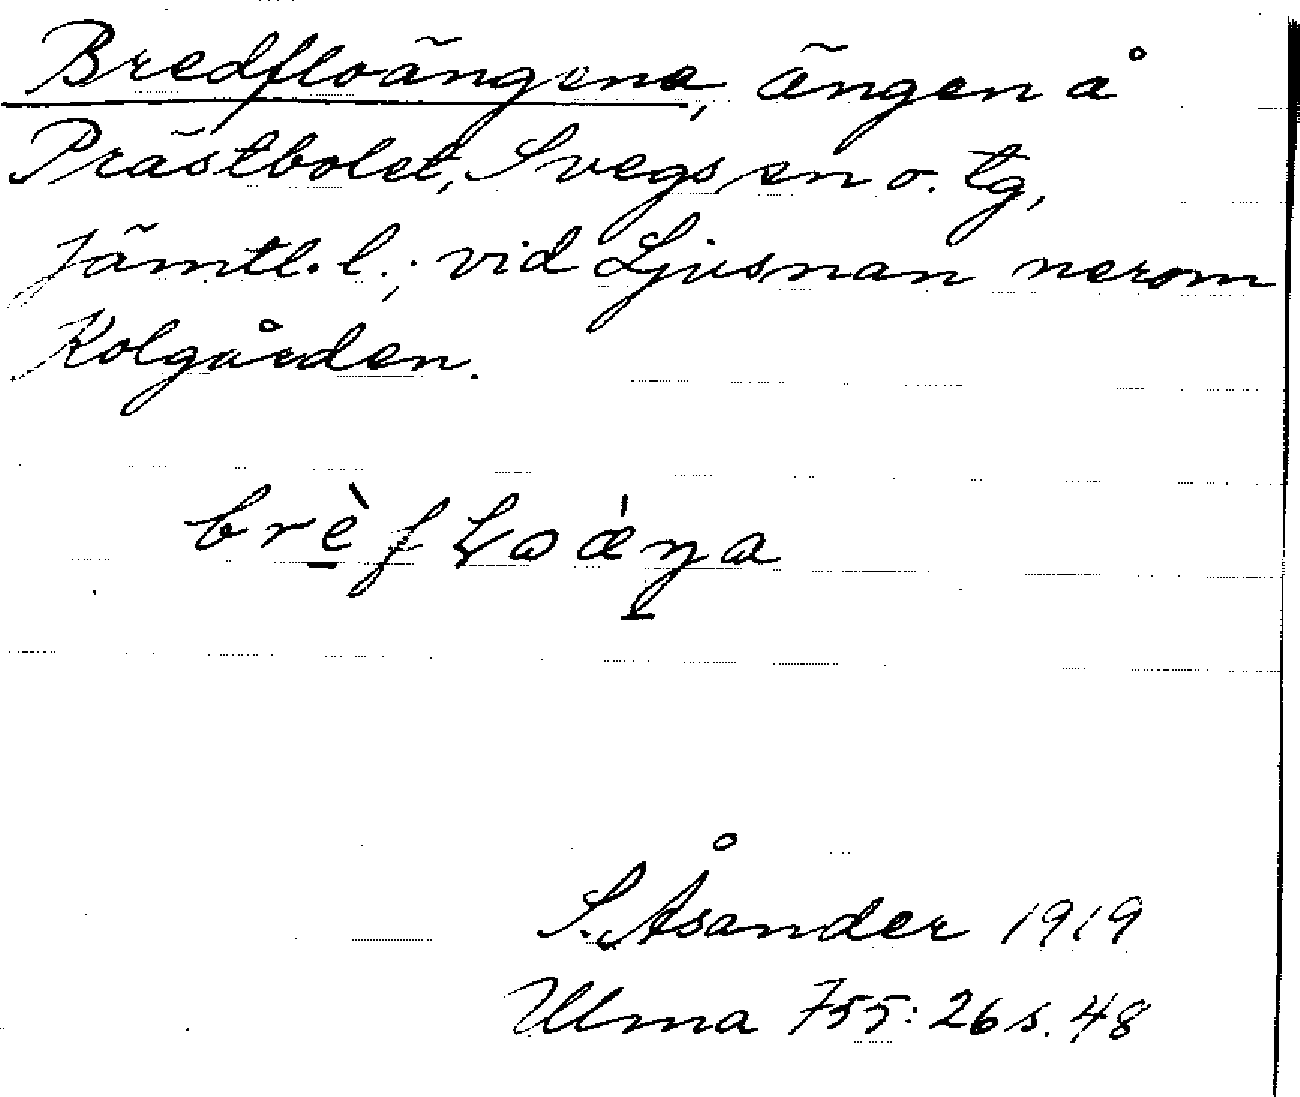 Bredfloängena, ängen å
Prästbolet, Svegs sn o. tg,
Jämtl. l.; vid Ljusnan nerom
Kolgården.
brèfLoǽŋa
S. Åsander 1919
Ulma 755:26 s. 48